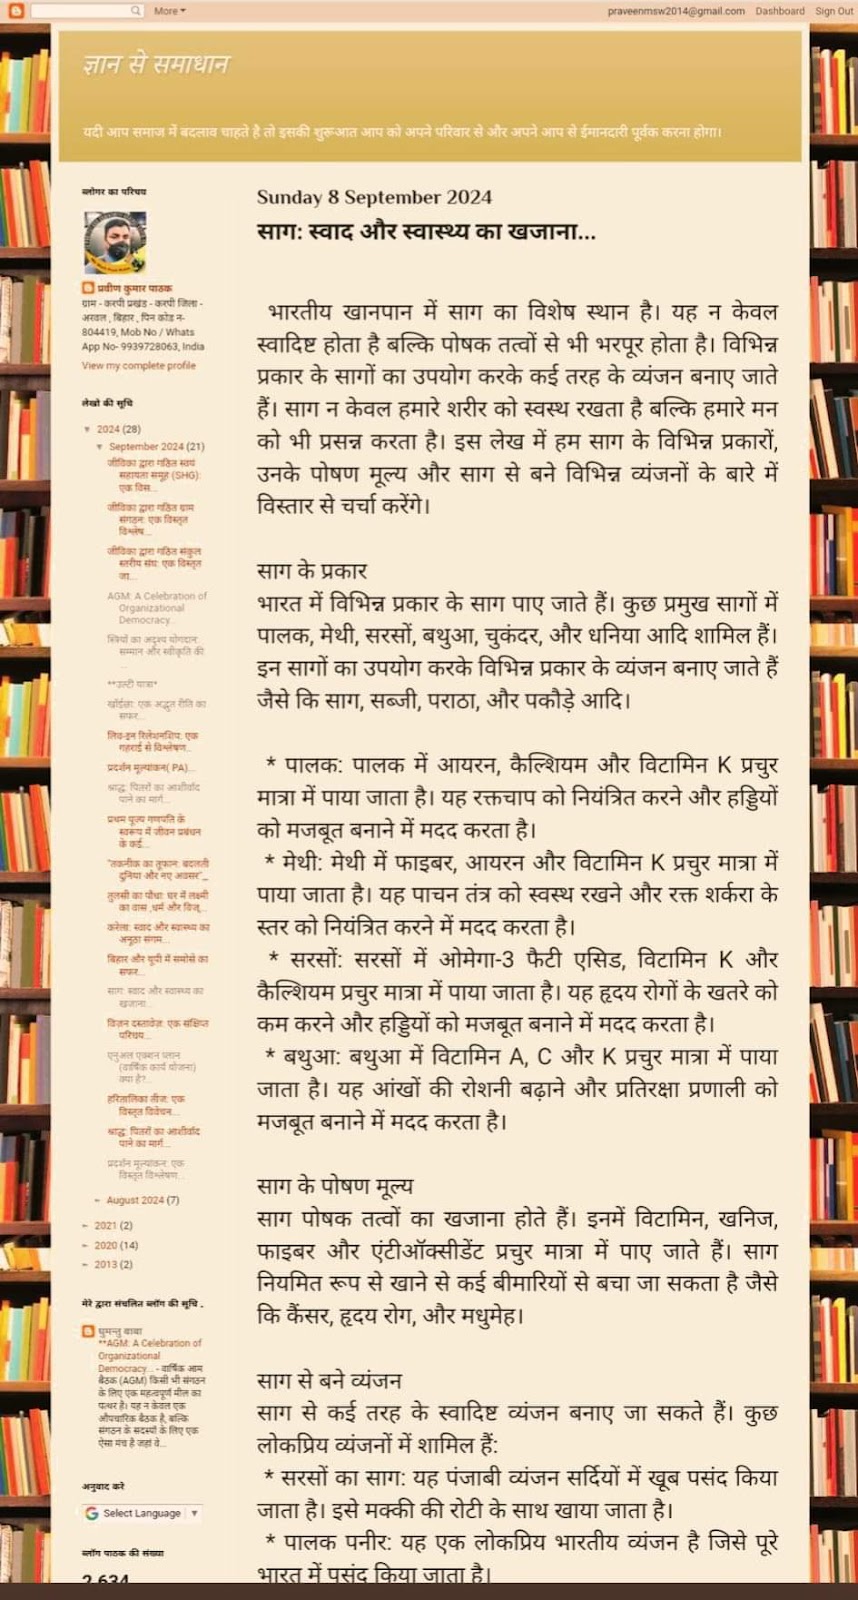 More
praveenmsw2014@gmail.com Dashboard Sign Out
ज्ञान से समाधान
यदी आप समाज में बदलाव चाहते है तो इसकी शुरूआत आप को अपने परिवार से और अपने आप से ईमानदारी पूर्वक करना होगा।
ब्लोगर का परिचय
प्रवीण कुमार पाठक
ग्राम - करपी प्रखंड - करपी जिला -
अरवल , बिहार , पिन कोड न-
804419, Mob No / Whats
App No- 9939728063, India
View my complete profile
लेखो की सूचि
2024 (28)
September 2024 (21)
जीविका द्वारा गठित स्वयं
सहायता समूह (SHG):
एक विस...
जीविका द्वारा गठित ग्राम
संगठन: एक विस्तृत
विश्लेष...
जीविका द्वारा गठित संकुल
स्तरीय संघ: एक विस्तृत
जा...
AGM: A Celebration of
Organizational
Democracy...
स्त्रियों का अदृश्य योगदान:
सम्मान और स्वीकृति की
...
**उल्टी यात्रा*
खोईंछा: एक अद्भुत रीति का
सफर...
लिव-इन रिलेशनशिप: एक
गहराई से विश्लेषण..
प्रदर्शन मूल्यांकन( PA)...
श्राद्ध: पितरों का आशीर्वाद
पाने का मार्ग...
प्रथम पूज्य गणपति के
स्वरूप में जीवन प्रबंधन
के कई...
"तकनीक का तूफान: बदलती
दुनिया और नए अवसर"_
तुलसी का पौधा: घर में लक्ष्मी
का वास ,धर्म और विज्...
करेला: स्वाद और स्वास्थ्य का
अनूठा संगम...
बिहार और यूपी में समोसे का
सफर...
साग: स्वाद और स्वास्थ्य का
खजाना...
विज़न दस्तावेज: एक संक्षिप्त
परिचय...
एनुअल एक्शन प्लान
(वार्षिक कार्य योजना)
क्या है?...
हरितालिका तीज: एक
विस्तृत विवेचन...
श्राद्ध: पितरों का आशीर्वाद
पाने का मार्ग...
प्रदर्शन मूल्यांकन: एक
विस्तृत विश्लेषण...
August 2024 (7)
2021 (2)
2020 (14)
2013 (2)
मेरे द्वारा संचलित ब्लॉग की सूचि .
घुमन्तु बाबा
**AGM: A Celebration of
Organizational
Democracy... - वार्षिक आम
बैठक (AGM) किसी भी संगठन
के लिए एक महत्वपूर्ण मील का
पत्थर है। यह न केवल एक
औपचारिक बैठक है, बल्कि
संगठन के सदस्यों के लिए एक
ऐसा मंच है जहां वे...
अनुवाद करे
Select Language
ब्लॉग पाठक की संख्या
2,634
Sunday 8 September 2024
साग: स्वाद और स्वास्थ्य का खजाना...
भारतीय खानपान में साग का विशेष स्थान है। यह न केवल
स्वादिष्ट होता है बल्कि पोषक तत्वों से भी भरपूर होता है। विभिन्न
प्रकार के सागों का उपयोग करके कई तरह के व्यंजन बनाए जाते
हैं। साग न केवल हमारे शरीर को स्वस्थ रखता है बल्कि हमारे मन
को भी प्रसन्न करता है। इस लेख में हम साग के विभिन्न प्रकारों,
उनके पोषण मूल्य और साग से बने विभिन्न व्यंजनों के बारे में
विस्तार से चर्चा करेंगे।
साग के प्रकार
भारत में विभिन्न प्रकार के साग पाए जाते हैं। कुछ प्रमुख सागों में
पालक, मेथी, सरसों, बथुआ, चुकंदर, और धनिया आदि शामिल हैं।
इन सागों का उपयोग करके विभिन्न प्रकार के व्यंजन बनाए जाते हैं
जैसे कि साग, सब्जी, पराठा, और पकौड़े आदि।
* पालक: पालक में आयरन, कैल्शियम और विटामिन K प्रचुर
मात्रा में पाया जाता है। यह रक्तचाप को नियंत्रित करने और हड्डियों
को मजबूत बनाने में मदद करता है।
* मेथी: मेथी में फाइबर, आयरन और विटामिन K प्रचुर मात्रा में
पाया जाता है। यह पाचन तंत्र को स्वस्थ रखने और रक्त शर्करा के
स्तर को नियंत्रित करने में मदद करता है।
* सरसों: सरसों में ओमेगा-3 फैटी एसिड, विटामिन K और
कैल्शियम प्रचुर मात्रा में पाया जाता है। यह हृदय रोगों के खतरे को
कम करने और हड्डियों को मजबूत बनाने में मदद करता है।
* बथुआ: बथुआ में विटामिन A, C और K प्रचुर मात्रा में पाया
जाता है। यह आंखों की रोशनी बढ़ाने और प्रतिरक्षा प्रणाली को
मजबूत बनाने में मदद करता है।
साग के पोषण मूल्य
साग पोषक तत्वों का खजाना होते हैं। इनमें विटामिन, खनिज,
फाइबर और एंटीऑक्सीडेंट प्रचुर मात्रा में पाए जाते हैं। साग
नियमित रूप से खाने से कई बीमारियों से बचा जा सकता है जैसे
कि कैंसर, हृदय रोग, और मधुमेह।
साग से बने व्यंजन
साग से कई तरह के स्वादिष्ट व्यंजन बनाए जा सकते हैं। कुछ
लोकप्रिय व्यंजनों में शामिल हैं:
* सरसों का साग: यह पंजाबी व्यंजन सर्दियों में खूब पसंद किया
जाता है। इसे मक्की की रोटी के साथ खाया जाता है।
* पालक पनीर: यह एक लोकप्रिय भारतीय व्यंजन है जिसे पूरे
भारत में पसंद किया जाता है।